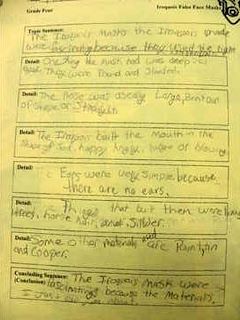 Grade Four Iroquois False Face Mask
Topic Sentence: The Iroquois masks the Iroquois made
were fascinating because they
Detail: One thing the mask had was deep
There were round and
Detail: The Nose was usealy Large, Broken
or straight
Detail: The Iroquois built the Mouth in the
shape of sad, happy, Angry, or blowing
Detail: Ears were very simple because
there are no ears.
Detail: Things that built them were
trees, horse hair, and
Detail: Some other materials are Paint, tin
and Copper.
Concluding Sentence: The Iroquois masks were
(Conclusion) fascinating because the Materials,